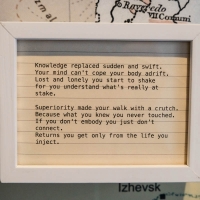 Rayfredo
VII Comuni
Knowledge replaced sudden and swift.
Your mind can't cope your body adrift.
Lost and lonely you start to shake
for you understand what's really at
stake.
Superiority made your walk with a crutch.
Because what you knew you never touched.
If you don't embody you just don't
connect.
Returns you get only from the life you
inject.
Izhevsk